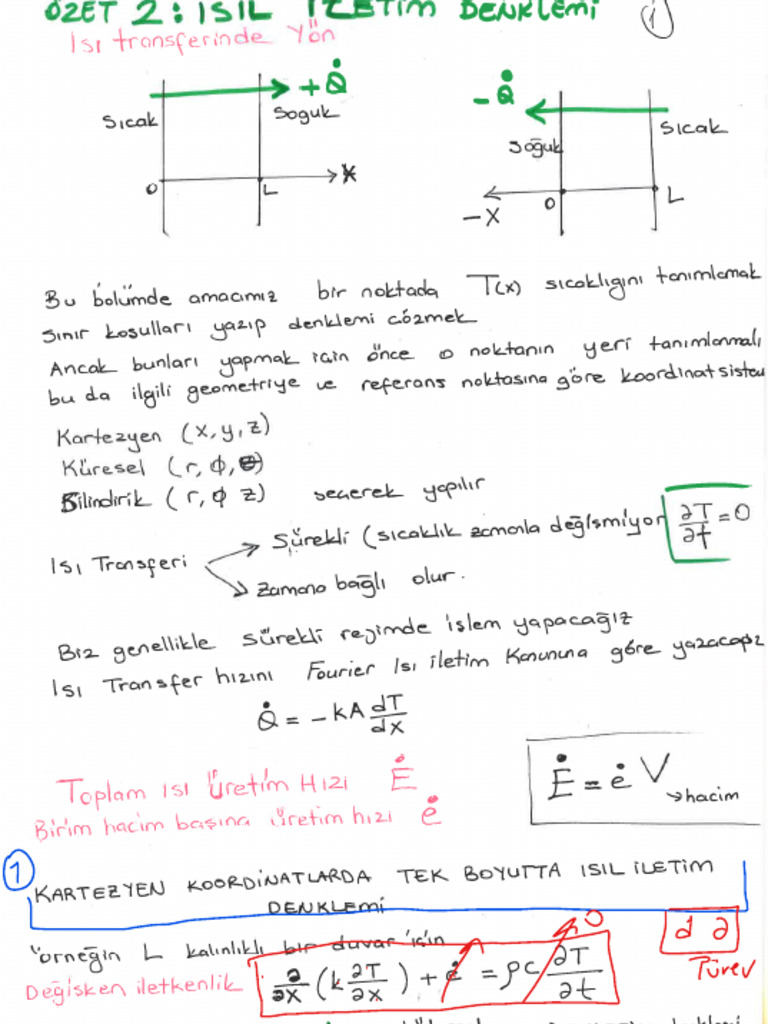 ÖZET 2: ISIL İLETİM DENKLEMİ
1
Isı transferinde Yön
+Q̇
Sıcak
Soğuk
0
L
x
-Q̇
Soğuk
Sıcak
-X
0
L
Bu bölümde amacımız bir noktada T(x) sıcaklığını tanımlamak
sınır koşulları yazıp denklemi çözmek
Ancak bunları yapmak için önce o noktanın yeri tanımlanmalı
bu da ilgili geometriye ve referans noktasına göre koordinat sistem
Kartezyen (x, y, z)
Küresel (r, φ, θ)
Silindirik (r, φ z) seçerek yapılır
Isı Transferi
Sürekli (sıcaklık zamanla değişmiyor ∂T/∂t = 0
zamana bağlı olur.
Biz genellikle sürekli rejimde işlem yapacağız
Isı Transfer hızını Fourier Isı iletim Kanununa göre yazacağız
Q̇ = -kA dT/dx
Toplam ısı üretim Hızı Ė
Birim hacim başına üretim hızı ė
Ė = ė V
→hacim
1
KARTEZYEN KOORDİNATLARDA TEK BOYUTTA ISIL İLETİM
DENKLEMİ
örneğin L kalınlıklı bir duvar için
Değişken iletkenlik
∂/∂x (k ∂T/∂x) + ė = ρc ∂T/∂t
0
d ∂
Türev